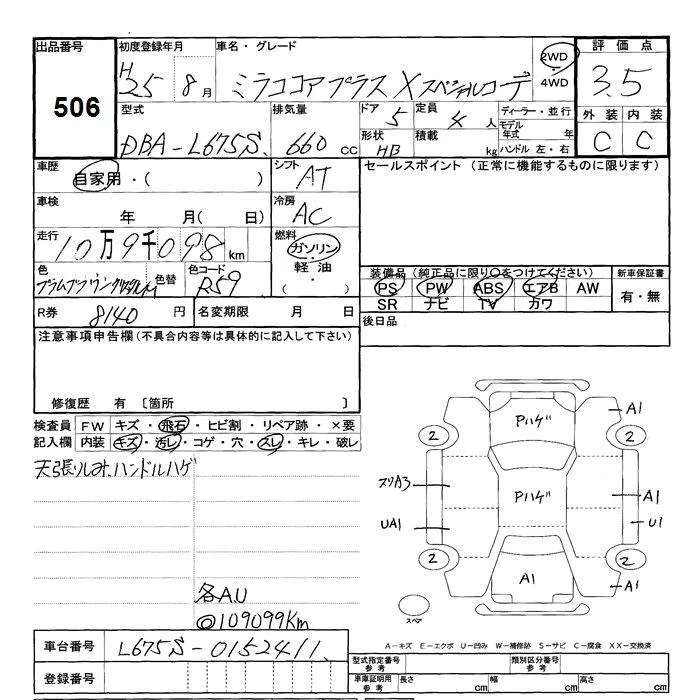 出品番号
506
初度登録年月
H25 8月
車名・グレード
ミラココアプラス X スペシャルコーデ
2WD
4WD
評価点
3.5
型式
DBA-L675S
排気量
660 cc
ドア
5
定員
4 人
ディーラー・並行
モデル年式 年
形状
HB
積載
kg
ハンドル 左・右
外装 内装
C C
車歴
自家用・( )
シフト
AT
セールスポイント (正常に機能するものに限ります)
車検
年 月( 日)
冷房
AC
走行
10万9千098km
燃料
ガソリン・
軽油・
( )
色
プラムブラウンクリスタルM
色替
色コード
R59
装備品 (純正品に限り○をつけてください)
PS PW ABS エアB AW
SR ナビ TV カワ
新車保証書
有・無
R券
8140 円
名変期限
月 日
後日品
注意事項申告欄(不具合内容等は具体的に記入して下さい)
修復歴 有 〔箇所 〕
検査員
記入欄
FW キズ・飛石・ヒビ割・リペア跡・×要
内装 キズ・汚レ・コゲ・穴・スレ・キレ・破レ
天張りしみ、ハンドルハゲ
各A.U
◎109099Km
Pハゲ
A1
2
2
スリA3
Pハゲ
A1
UA1
U1
2
2
A1
A1
スペア
A-キズ E-エクボ U-凹み W-補修跡 S-サビ C-腐食 XX-交換済
車台番号
L675S-0152411
登録番号
型式指定番号
参考
類別区分番号
参考
車庫証明用
参考
長さ cm
幅 cm
高さ cm